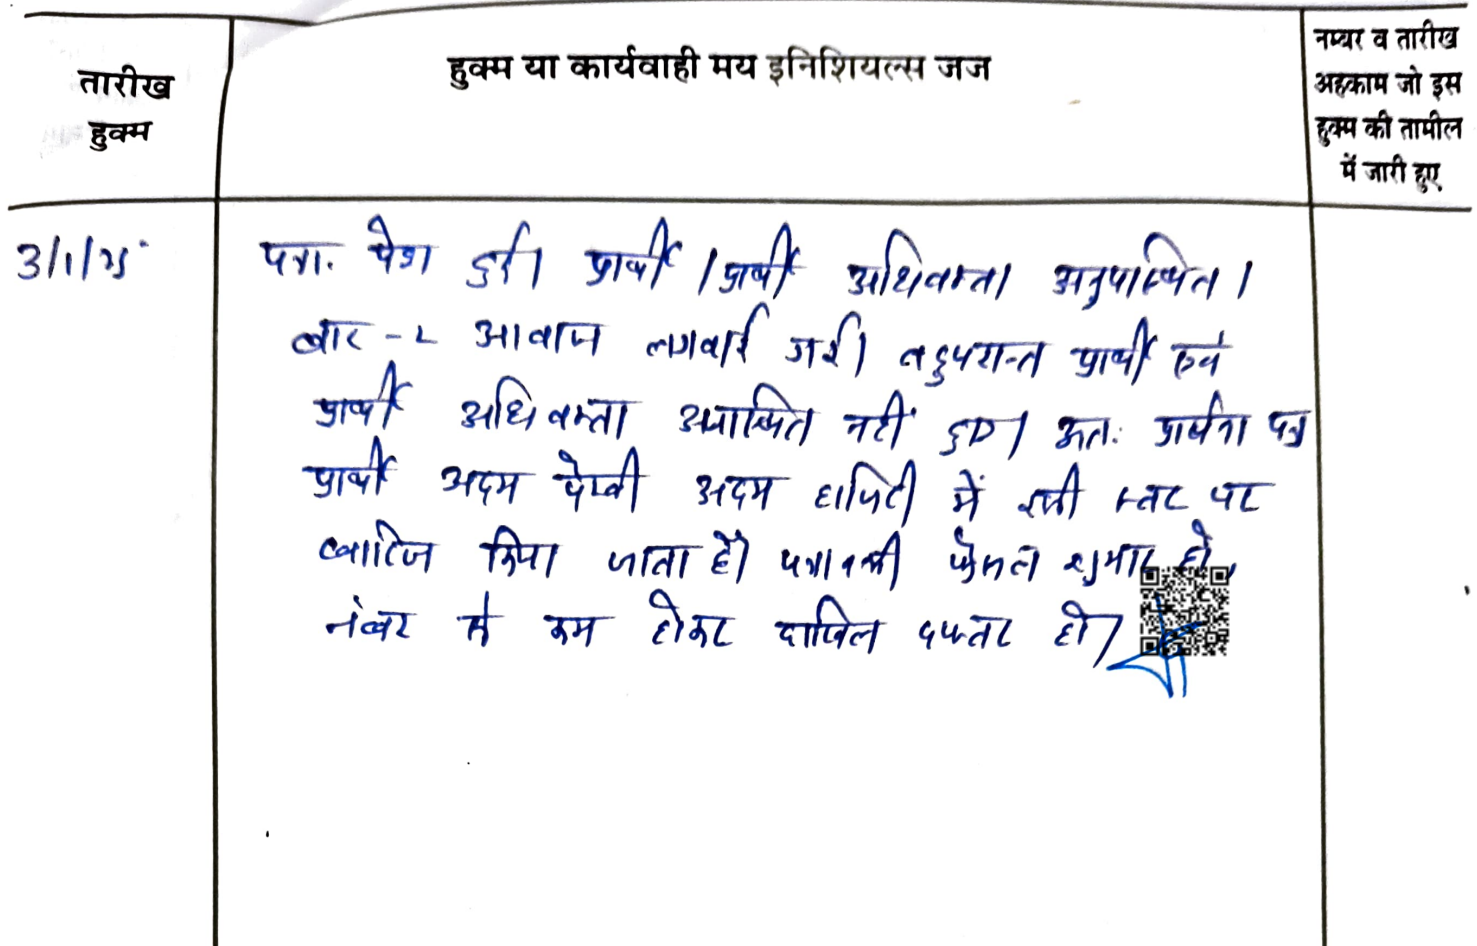 तारीख
हुक्म
हुक्म या कार्यवाही मय इनिशियल्स जज
नम्बर व तारीख
अहकाम जो इस
हुक्म की तामील
में जारी हुए
3/1/25
पत्रा. पेश हुई। प्रार्थी / प्रार्थी अधिवक्ता अनुपस्थित।
बार-2 आवाज लगवाई गई। तदुपरान्त प्रार्थी एवं
प्रार्थी अधिवक्ता उपस्थित नहीं हुए। अतः प्रार्थना पत्र
प्रार्थी अदम पैरवी अदम हाजिरी में इसी स्तर पर
खारिज किया जाता है। पत्रावली फैसल शुमार हो,
नंबर से कम होकर दाखिल दफ्तर हो।